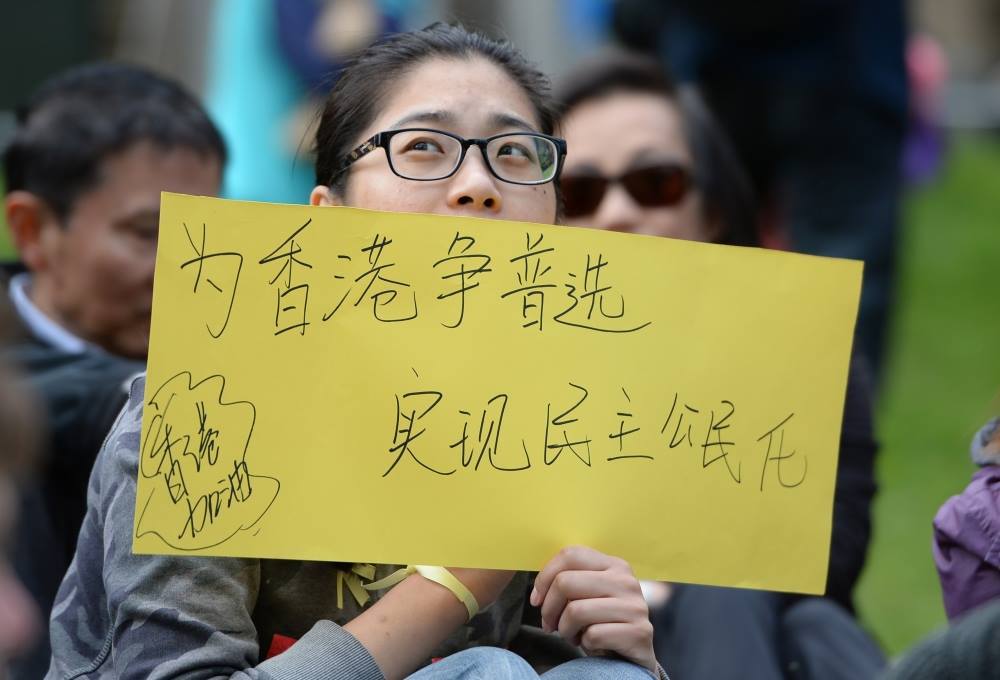 为香港争普选
实现民主公民化
香港
加油